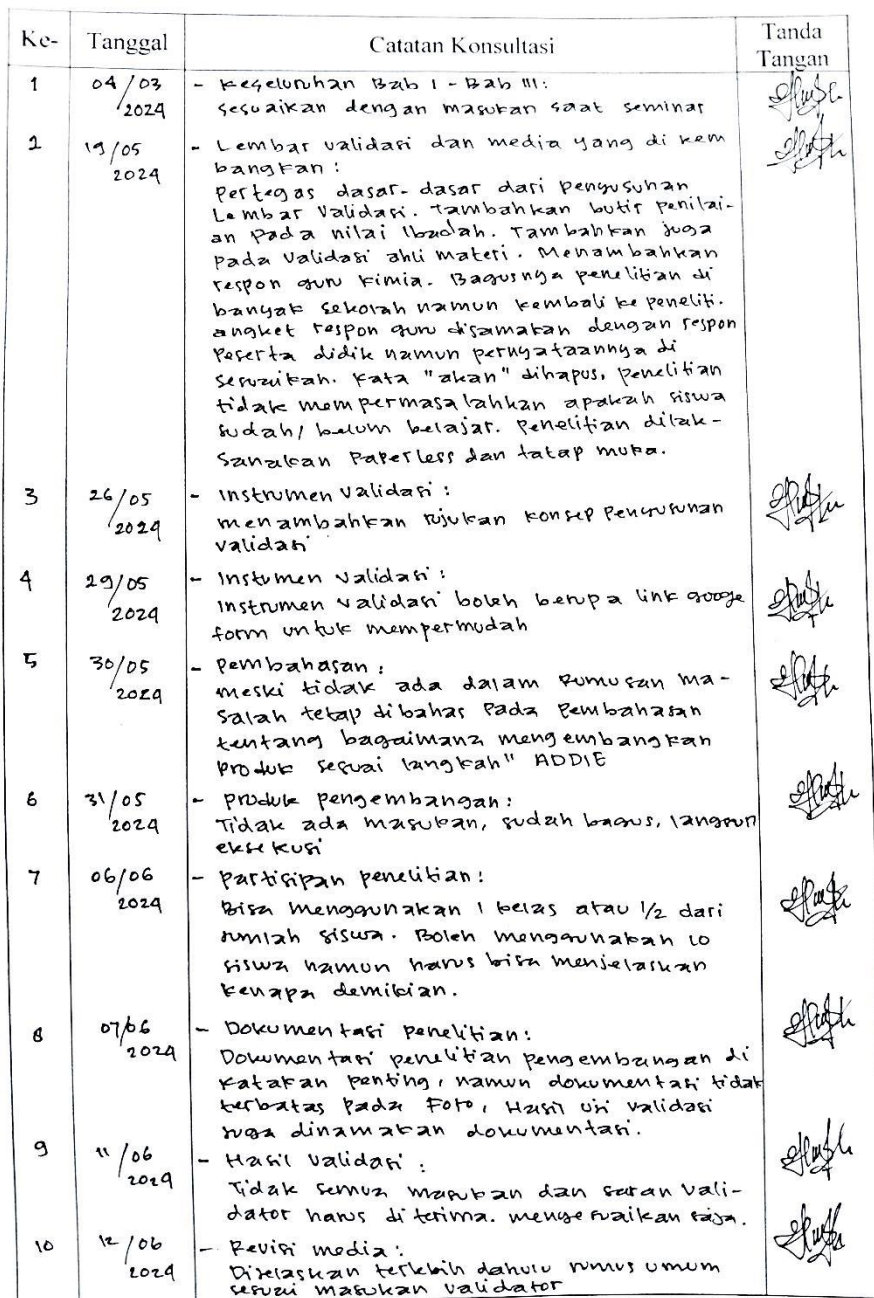 Ke- Tanggal Catatan Konsultasi Tanda Tangan
1 04/03 2024 - Keseluruhan Bab I - Bab III:
sesuaikan dengan masukan saat seminar
2 19/05 2024 - Lembar validasi dan media yang di kem
bangkan :
Pertegas dasar-dasar dari Penyusunan
Lembar Validasi. Tambahkan butir penilai-
an pada nilai Ibadah. Tambahkan juga
pada validasi ahli materi. Menambahkan
respon guru kimia. Bagusnya penelitian di
banyak sekolah namun kembali ke peneliti.
angket respon guru disamakan dengan respon
Peserta didik namun pernyataannya di
sesuaikan. Kata "akan" dihapus, penelitian
tidak mempermasalahkan apakah siswa
sudah/ belum belajar. Penelitian dilak-
sanakan Paperless dan tatap muka.
3 26/05 2024 - Instrumen validasi :
menambahkan rujukan konsep penyusunan
validasi
4 29/05 2024 - Instumen validasi :
Instrumen validasi boleh berupa link googe
form untuk mempermudah
5 30/05 2024 - Pembahasan :
meski tidak ada dalam Rumusan ma-
salah tetap dibahas Pada Pembahasan
tentang bagaimana mengembangkan
produk sesuai langkah" ADDIE
6 31/05 2024 - produk pengembangan :
Tidak ada masukan, sudah bagus, langsun
eksekusi
7 06/06 2024 - Partisipan penelitian :
Bisa menggunakan 1 kelas atau 1/2 dari
jumlah siswa. Boleh menggunakan 10
siswa namun harus bisa menjelaskan
kenapa demikian.
8 07/06 2024 - Dokumentasi penelitian :
Dokumentasi penelitian pengembangan di
katakan penting, namun dokumentasi tidak
terbatas Pada Foto, Hasil uji validasi
juga dinamakan dokumentasi.
9 11/06 2024 - Hasil validasi :
Tidak semua masukan dan saran vali-
dator harus di terima. menyesuaikan saja.
10 12/06 2024 - Revisi media :
Dijelaskan terlebih dahulu rumus umum
sesuai masukan validator